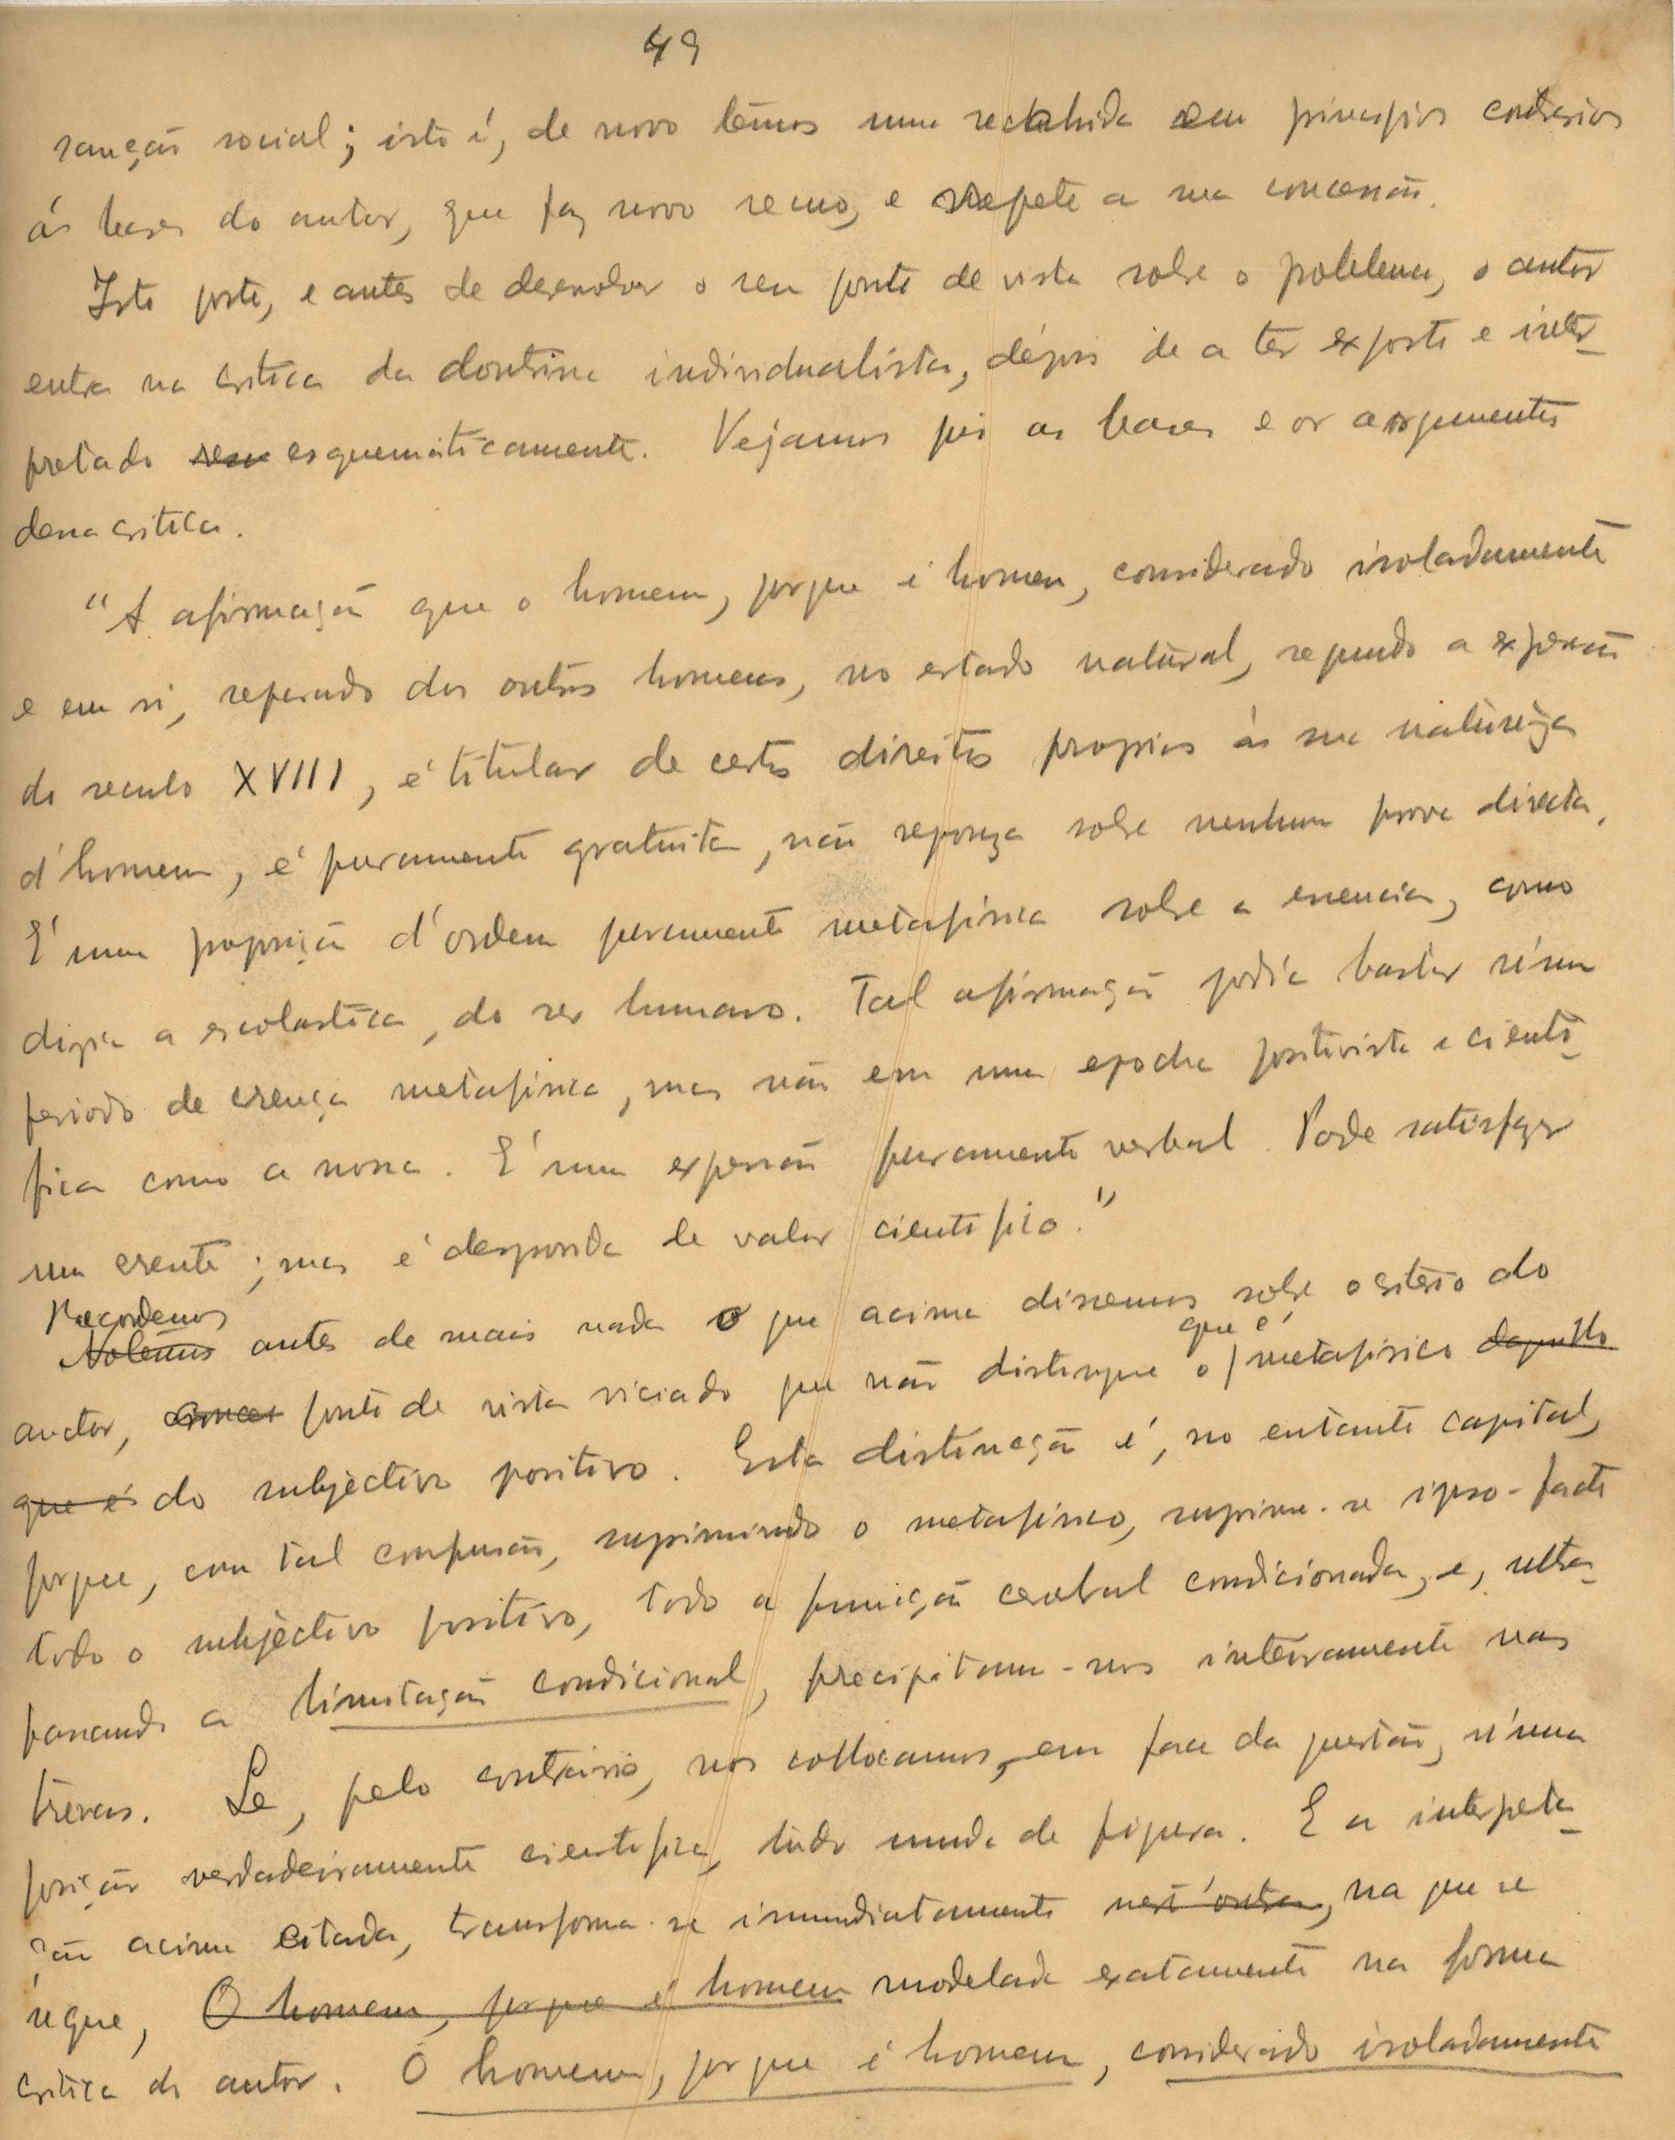 49
sanção social; isto é, de novo têmos uma recahida em principios contrarios
ás bases do autor, que faz novo recuo, e repete a sua concessão.
Isto posto, e antes de desenvolver o seu ponto de vista sobre o problema, o autor
entra na critica da doutrina individualista, depois de a ter exposto e inter-
pretado seu esquemáticamente. Vejamos pois as bases e os argumentos
dessa critica.
"A afirmação que o homem, porque é homem, considerado isoladamente
e em si, separado dos outros homens, no estado natural, segundo a expressão
do seculo XVIII, é titular de certos direitos proprios ás sua natureza
d'homem, é puramente gratuita, não repousa sobre nenhuma prova directa.
É uma proposição d'ordem puramente metafisica sobre a essencia, como
dizia a escolastica, do ser humano. Tal afirmação podia bastar n'um
periodo de crença metafisica, mas não em uma epocha positivista e cienti-
fica como a nossa. É uma expressão puramente verbal. Pode satisfazer
um crente; mas é desprovida de valor cientifico."
Recordemos
Notemos antes de mais nada o que acima dissemos sobre o criterio do
que é
auctor, ponto de vista viciado que não distingue o metafisico daquillo
que é do subjectivo positivo. Esta distincção é, no entanto capital,
porque, com tal confusão, suprimindo o metafisico, suprime-se ipso-facto
todo o subjectivo positivo, todo a funcção cerebral condicionada, e, ultra-
passando a limitação condicional, precipitam-nos inteiramente nas
trevas. Se, pelo contrário, nos collocamos, em face da questão, n'uma
posição verdadeiramente cientifica, tudo muda de figura. E a interpreta-
ção acima citada, transforma-se immediatamente nest'outra, na que se
segue, O homem, porque é homem modelada exatamente na forma
critica do autor. O homem, porque é homem, considerado isoladamente